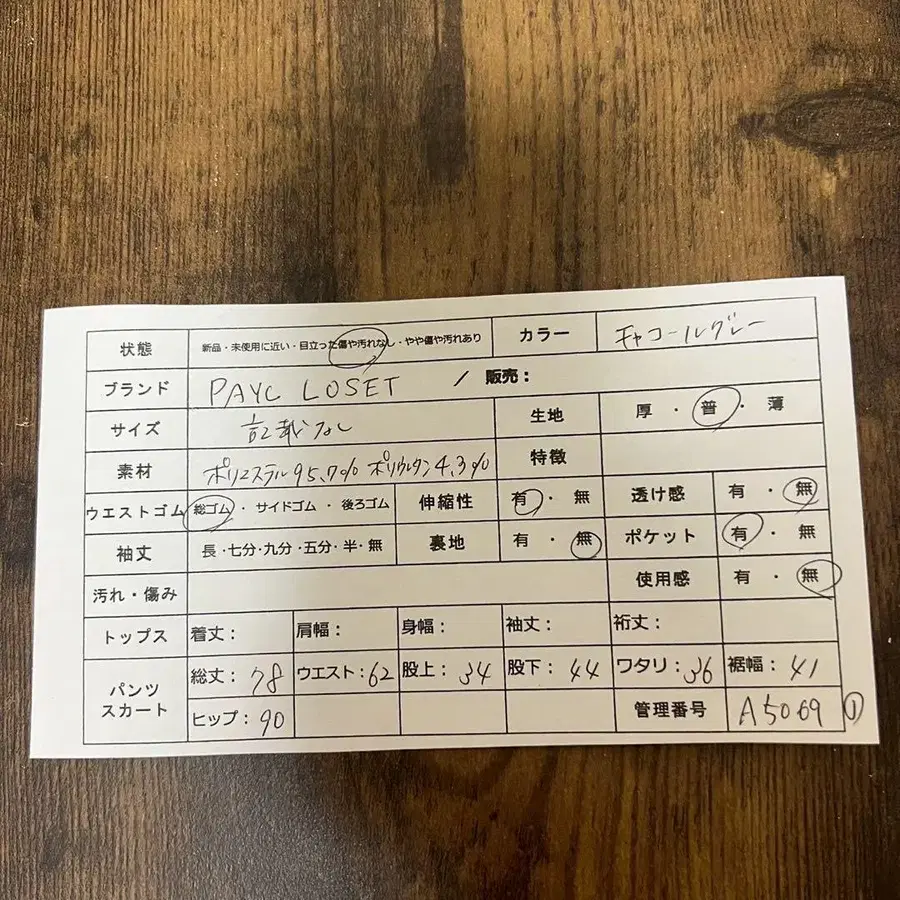 状態 新品・未使用に近い・目立った傷や汚れなし・やや傷や汚れあり カラー チャコールグレー
ブランド PAYC LOSET / 販売：
サイズ 記載なし 生地 厚・普・薄
素材 ポリエステル95,7% ポリウレタン4,3% 特徴
ウエストゴム 総ゴム・サイドゴム・後ろゴム 伸縮性 有・無 透け感 有・無
袖丈 長・七分・九分・五分・半・無 裏地 有・無 ポケット 有・無
汚れ・傷み 使用感 有・無
トップス 着丈： 肩幅： 身幅： 袖丈： 裄丈：
パンツ スカート 総丈：78 ウエスト：62 股上：34 股下：44 ワタリ：36 裾幅：41
ヒップ：90 管理番号 A5069 ①